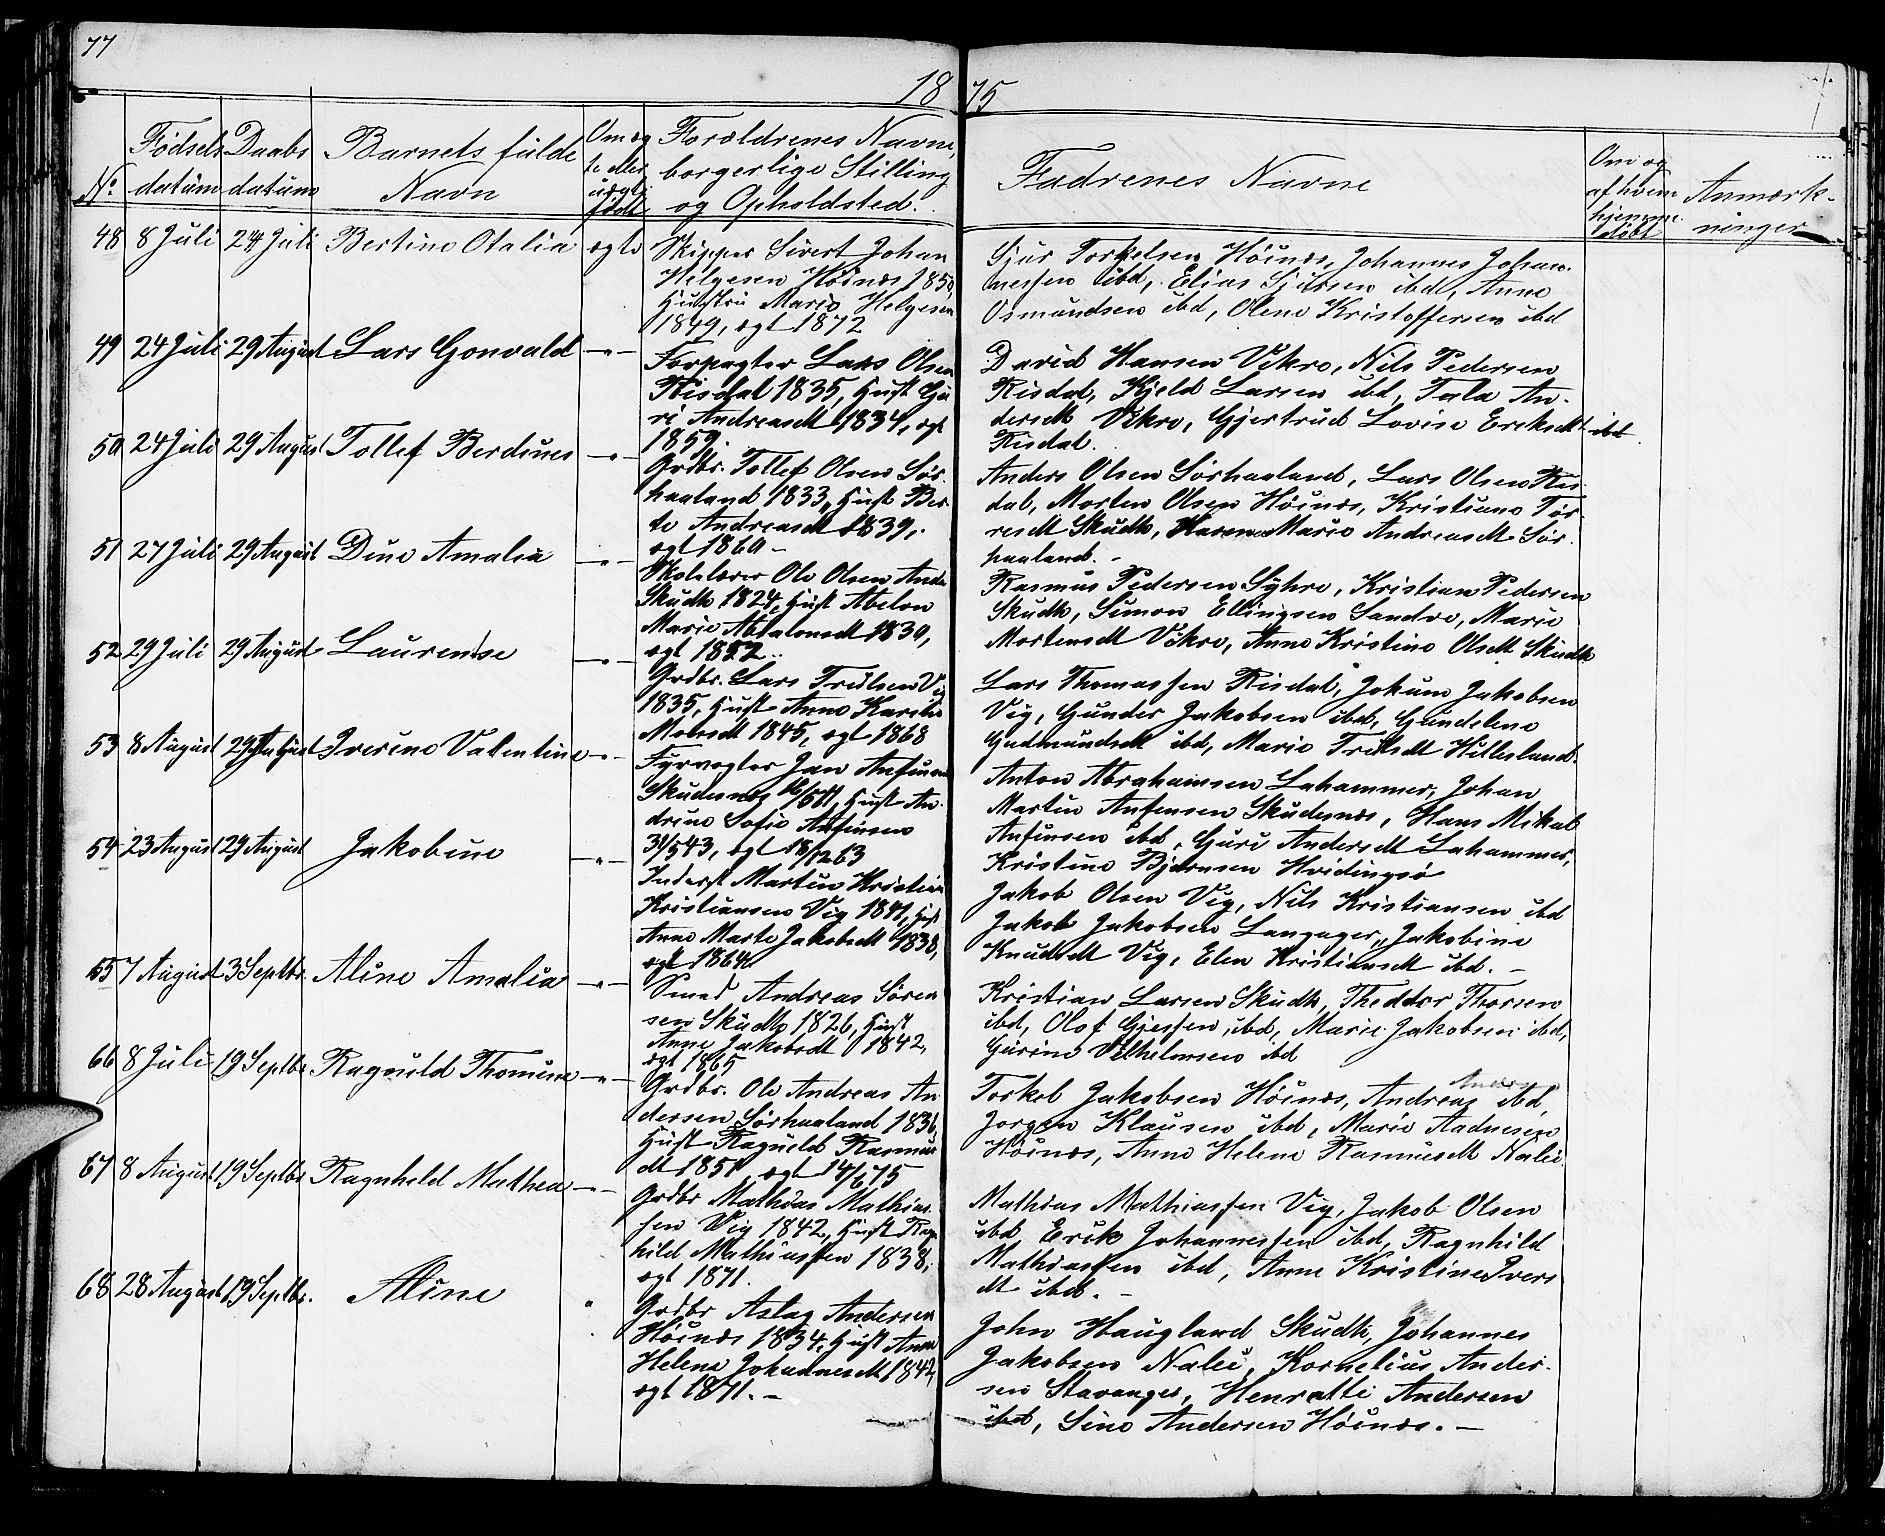 77
18 75
No.
Fødsels datum
Daabs datum
Barnets fulde Navn
Om ægte eller uægte født
Forældrenes Navne, borgerlige Stilling og Opholdsted.
Fadrenes Navne
Om og af hvem hjemmedøbt
Anmærkninger
48 8 Juli 24 Juli Bertine Otalia ægte
Skipper Sivert Johan
Helgesen Høinæs 1850,
Hustru Marie Helgesen
1849, ægt 1872
Sjur Torkelsen Høinæs, Johannes Johan-
nessen ibd, Elias Sjursen ibd, Anne
Osmundsen ibd, Olene Kristoffersen ibd
49 24 Juli 29 August Lars Gonvald -"-
Forpagter Lars Olsen
Risdal 1835, Hust Gu
ri Andreasdt 1834, ægt
1859.
David Hansen Vikre, Nils Pedersen
Risdal, Kjeld Larsen ibd, Tala An-
dersdt Vikre, Gjertrud Lovise Ereksdt ibd.
Risdal.
50 24 Juli 29 August Tollef Berdines -"-
Grdbr. Tollef Olsen Sør-
haaland 1833, Hust Ber-
te Andreasdt 1839,
ægt 1860 -
Anders Olsen Sørhaaland, Lars Olsen Ris-
dal, Morten Olsen Høinæs, Kristiane Tor-
resdt Skudh, Karen Marie Andreasdt Sør-
haaland. -
51 27 Juli 29 August Dine Amalia -"-
Skolelærer Ole Olsen Anda
Skudh 1824, Hust Abelon
Marie Absalonsdt 1830,
ægt 1852..
Rasmus Pedersen Syhre, Kristian Pedersen
Skudh, Simon Ellingsen Sandve, Marie
Mortensdt Vikre, Anne Kristine Olsdt Skudh
52 29 Juli 29 August Laurense -"-
Grdbr. Lars Trulsen Vig
1835, Hust Anne Karine
Molesdt 1845, ægt 1868
Lars Thomassen Risdal, Jokum Jakobsen
Vig, Gunder Jakobsen ibd, Gundelene
Gudmundsdt ibd, Marie Trulsdt Hillesland.
53 8 August 29 August Iverine Valentine -"-
Fyrvogter Jan Anfinsen
Skudesnæs, Hust An-
drine Sofie Anfinsen
31/5 43, ægt 18/12 63
Anton Abrahamsen Lahammer, Johan
Martin Anfensen Skudesnæs, Hans Mikal
Anfinsen ibd, Guri Andersdt Lahammer,
Kristine Bjørnsen Hvidingsø
54 23 August 29 August Jakobine -"-
Inderst Martin Kristian
Kristiansen Vig 1841, Hust
Anne Marte Jakobsdt 1838,
ægt 1864
Jakob Olsen Vig, Nils Kristiansen ibd
Jakob Jakobsen Langager, Jakobine
Knudsdt Vig, Elen Kristiansdt ibd. -
65 7 August 3 Septbr. Aline Amalia -"-
Smed Andreas Søren
sen Skudh 1826, Hust
Anne Jakobsdt 1842,
ægt 1865
Kristian Larsen Skudh, Theodor Thorsen
ibd, Olof Gjessen, ibd, Marie Jakobsen ibd,
Gurine Vilhelmsen ibd
66 8 Juli 19 Septbr Ragnild Thomine -"-
Grdbr. Ole Andreas An
dersen Sørhaaland 1836,
Hust Ragnild Rasmus
dt 1851 ægt 14/6 75
Torkel Jakobsen Høinæs, Andreas Anders ibd,
Jorgen Klausen ibd, Marie Aadnesen
Høinæs, Anne Helene Rasmusdt Nalei
67 8 August 19 Septbr Ragnhild Mathea -"-
Grdbr Mathias Mathias-
sen Vig 1842, Hust Ragn
hild Mathiassen 1838,
ægt 1871.
Mathias Mathiassen Vig, Jakob Olsen
ibd, Erik Johannessen ibd, Ragnhild
Mathiassen ibd, Anne Kristine Ivers
dt ibd. -
68 28 August 19 Septbr. Aline "
Grdbr Aslag Andersen
Høinæs 1834, Hust Anne
Helene Johannesdt 1842,
ægt 1871. -
John Haugland Skudh, Johannes
Jakobsen Nalei, Kornelius Ander-
sen Stavanger, Henratte Andersen
ibd, Sine Andersen Høinæs. -